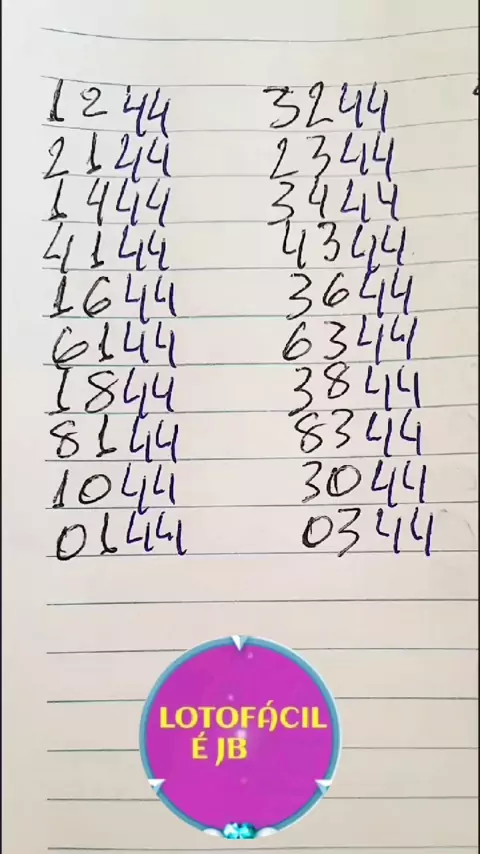 1244 3244
2144 2344
1444 3444
4144 4344
1644 3644
6144 6344
1844 3844
8144 8344
1044 3044
0144 0344
LOTOFÁCIL
É JB